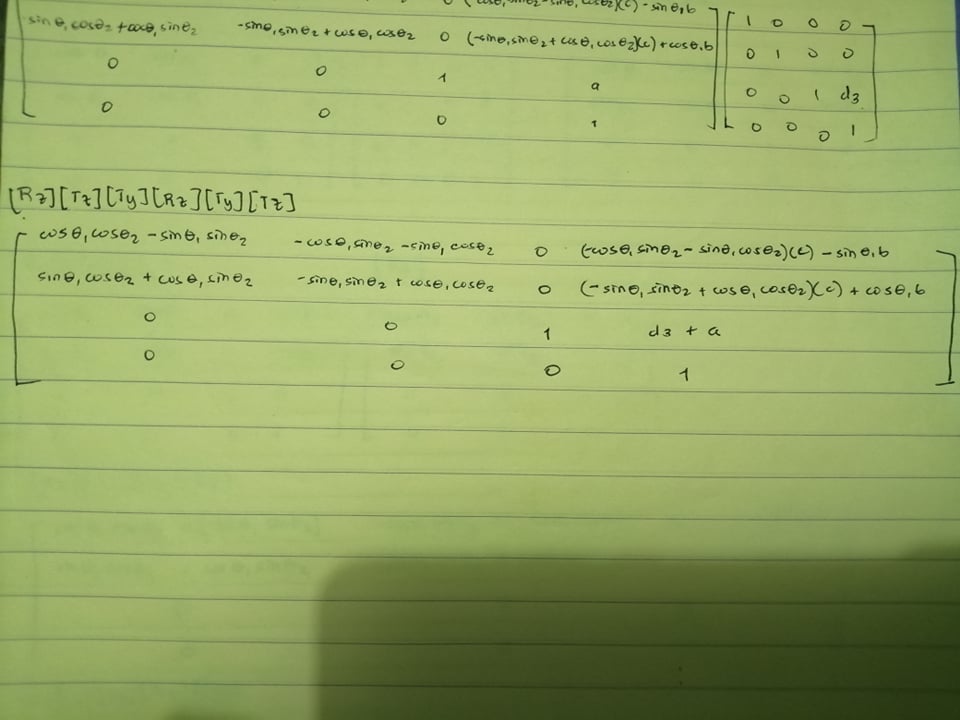 0 (-cosθ₁sinθ₂-sinθ₁cosθ₂)(c) - sinθ₁b 1 0 0 0
sinθ₁cosθ₂ + cosθ₁sinθ₂ -sinθ₁sinθ₂ + cosθ₁cosθ₂ 0 (-sinθ₁sinθ₂ + cosθ₁cosθ₂)(c) + cosθ₁b 0 1 0 0
0 0 1 a 0 0 1 d3
0 0 0 1 0 0 0 1
[Rz][Tz][Ty][Rz][Ty][Tz]
cosθ₁cosθ₂ - sinθ₁sinθ₂ -cosθ₁sinθ₂ - sinθ₁cosθ₂ 0 (-cosθ₁sinθ₂ - sinθ₁cosθ₂)(c) - sinθ₁b
sinθ₁cosθ₂ + cosθ₁sinθ₂ -sinθ₁sinθ₂ + cosθ₁cosθ₂ 0 (-sinθ₁sinθ₂ + cosθ₁cosθ₂)(c) + cosθ₁b
0 0 1 d3 + a
0 0 0 1